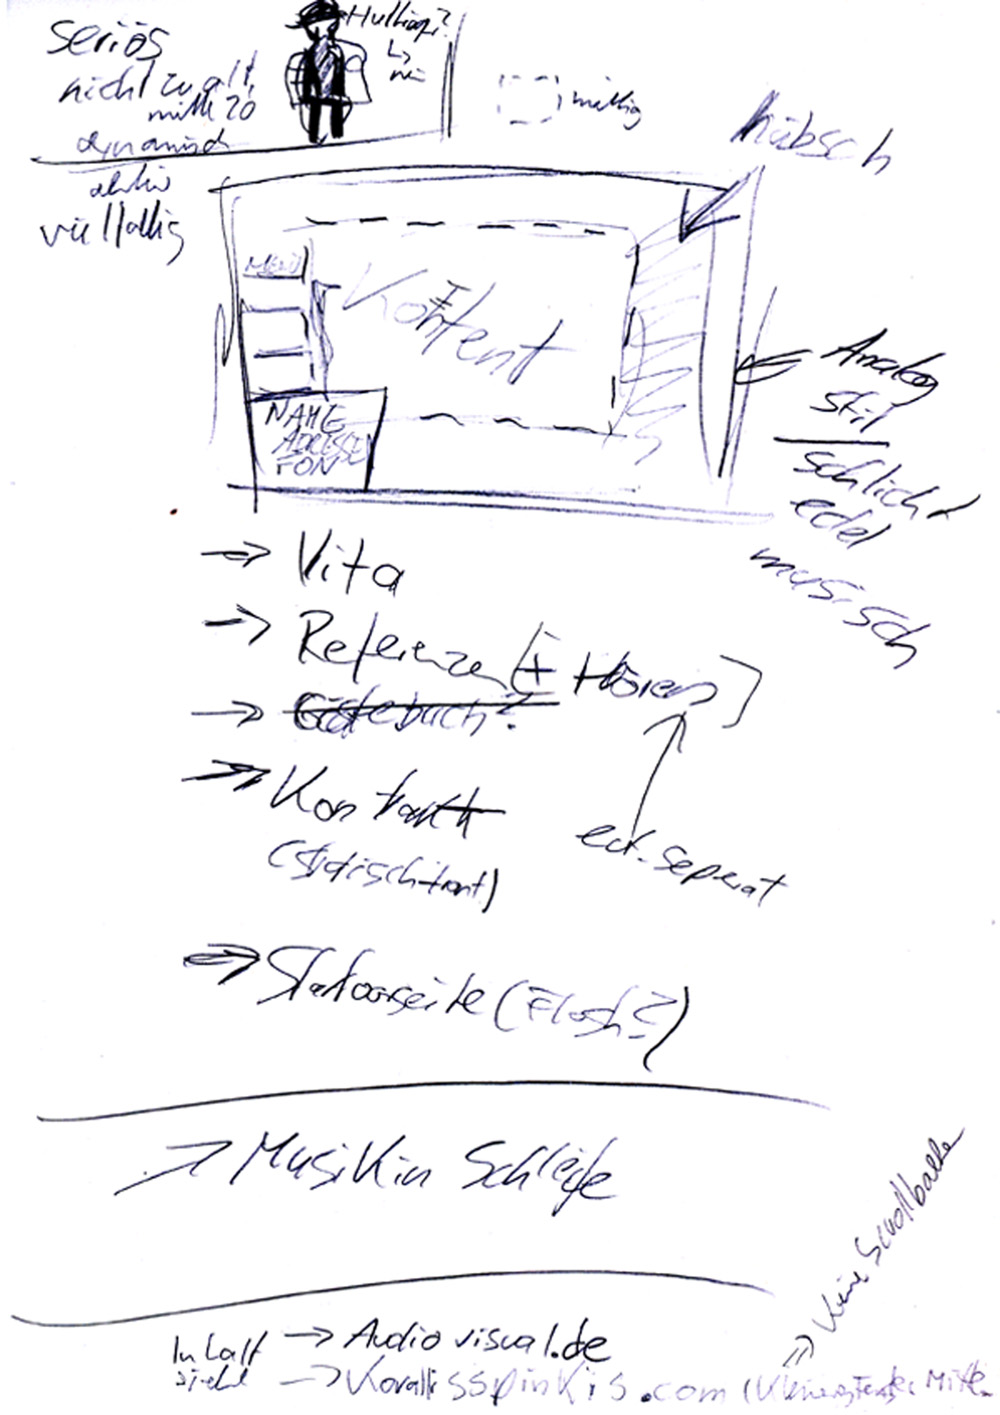 seriös
nicht zu alt,
mitte 20
dynamisch
aktiv
vielfältig
mittig
hübsch
MENÜ
Kontent
NAME
ADRESSE
FON
Analog
Stil
schlicht
edel
musisch
→ Vita
→ Referenzen (+ Hören)
→ Gästebuch?
→ Kontakt
evt. seperat
→ Startseite (Flash?)
→ Musik in Schleife
Keine Scrollbalken
Inhalt → Audiovisual.de
siehe → Korallisspinkis.com